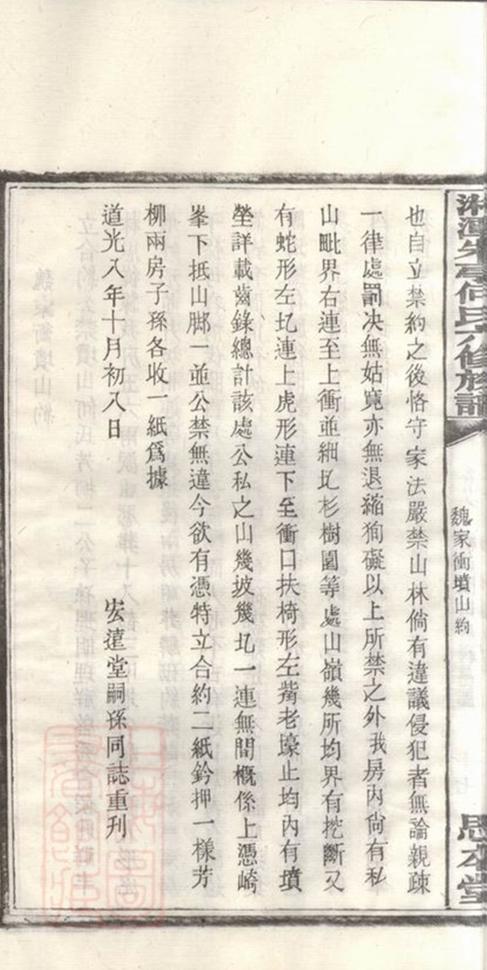 湘潭朱亭何氏六修族譜
魏家衝墳山約
思本堂
也自立禁約之後恪守家法嚴禁山林倘有違議侵犯者無論親疎
一律處罰决無姑寬亦無退縮狥礙以上所禁之外我房內尙有私
山毗界右連至上衝並細圠杉樹園等處山嶺幾所均界有挖斷又
有蛇形左圠連上虎形連下至衝口扶椅形左嘴老壕止均內有墳
塋詳載齒錄總計該處公私之山幾坡幾圠一連無間概係上憑崎
峯下抵山脚一並公禁無違今欲有憑特立合約二紙鈐押一樣芳
柳兩房子孫各收一紙爲據
道光八年十月初八日
宏遠堂嗣孫同誌重刊